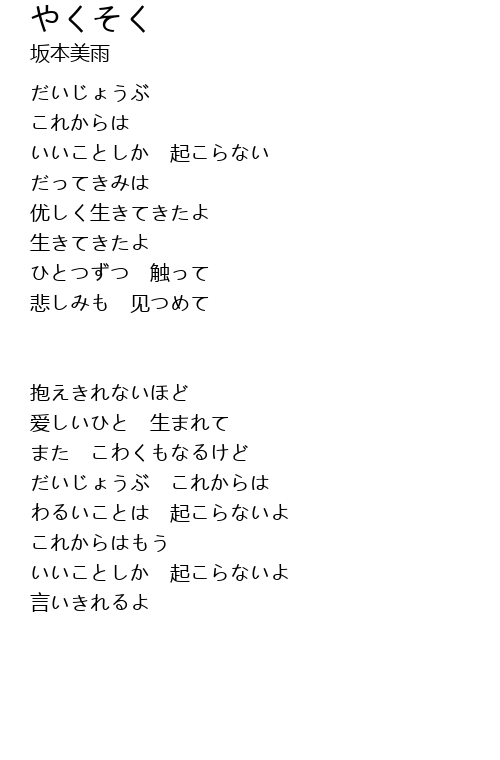 やくそく
坂本美雨
だいじょうぶ
これからは
いいことしか　起こらない
だってきみは
优しく生きてきたよ
生きてきたよ
ひとつずつ　触って
悲しみも　见つめて
抱えきれないほど
爱しいひと　生まれて
また　こわくもなるけど
だいじょうぶ　これからは
わるいことは　起こらないよ
これからはもう
いいことしか　起こらないよ
言いきれるよ